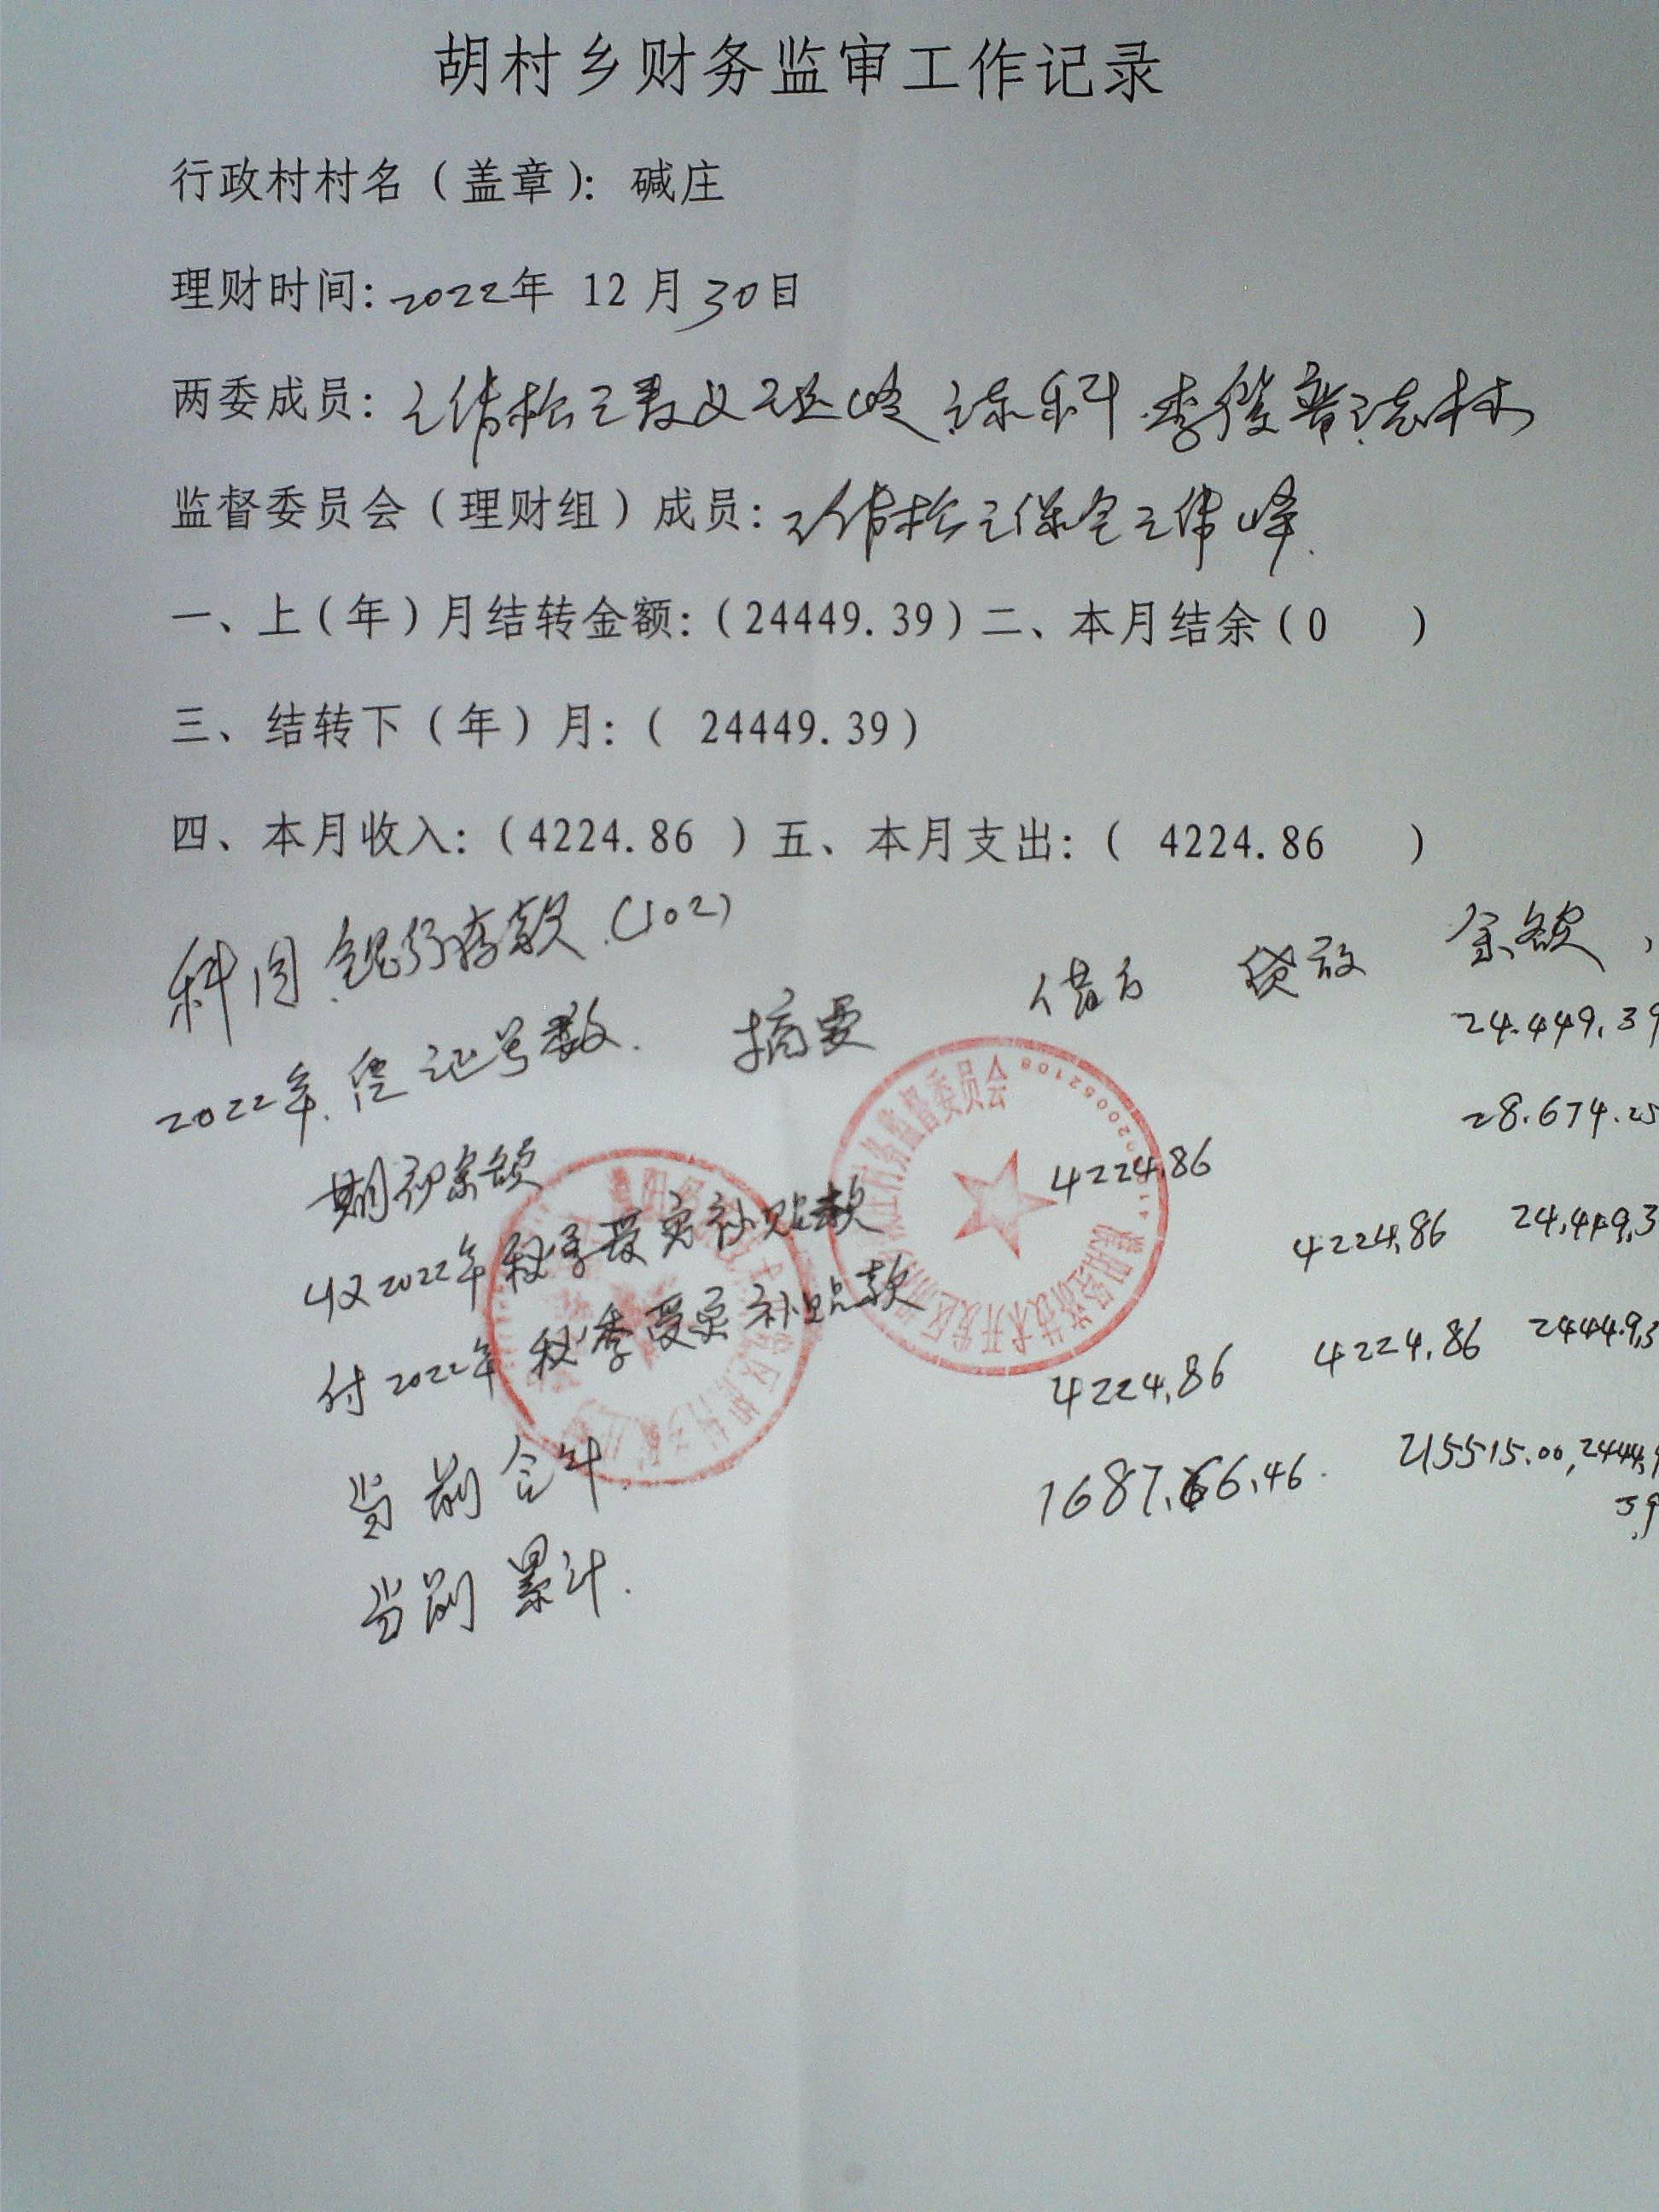 胡村乡财务监审工作记录
行政村村名（盖章）：碱庄
理财时间：2022年 12 月 30日
两委成员：王伟松 王 义 王 峰 陈 科 李俊 普志林
监督委员会（理财组）成员：王伟松 王保全 王伟峰
一、上（年）月结转金额：（24449.39）二、本月结余（0 ）
三、结转下（年）月：（ 24449.39）
四、本月收入：（4224.86 ）五、本月支出：（ 4224.86 ）
科目 银行存款（102）
2022年 凭证号数 摘要 借方 贷方 余额
期初余额 24.449.39
收2022年秋季受灾补贴款 4224.86 28.674.25
付2022年秋季受灾补贴款 4224.86 24,449,3
当前合计 4224.86 4224.86 24449.3
当前累计 1687.66.46 215515.00 2444.9
39
务监督委员会
濮阳经济技术开发区